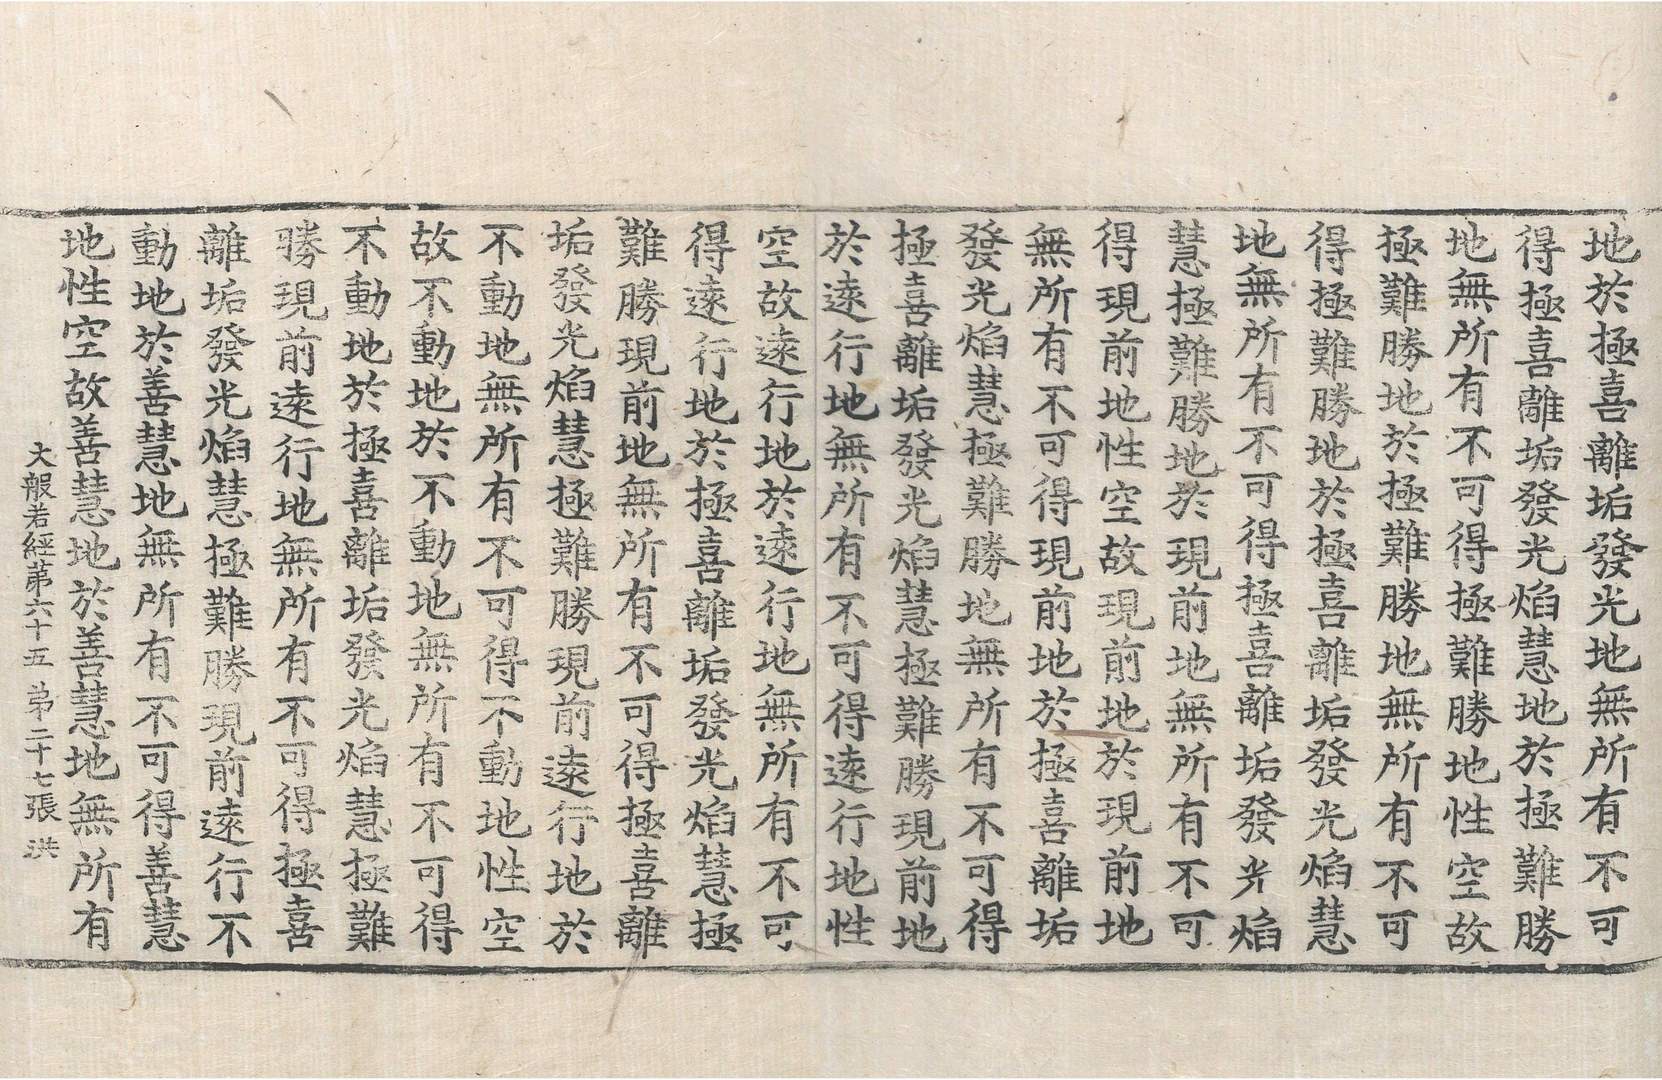 地於極喜離垢發光地無所有不可
得極喜離垢發光焰慧地於極難勝
地無所有不可得極難勝地性空故
極難勝地於極難勝地無所有不可
得極難勝地於極喜離垢發光焰慧
地無所有不可得極喜離垢發光焰
慧極難勝地於現前地無所有不可
得現前地性空故現前地於現前地
無所有不可得現前地於極喜離垢
發光焰慧極難勝地無所有不可得
極喜離垢發光焰慧極難勝現前地
於遠行地無所有不可得遠行地性
空故遠行地於遠行地無所有不可
得遠行地於極喜離垢發光焰慧極
難勝現前地無所有不可得極喜離
垢發光焰慧極難勝現前遠行地於
不動地無所有不可得不動地性空
故不動地於不動地無所有不可得
不動地於極喜離垢發光焰慧極難
勝現前遠行地無所有不可得極喜
離垢發光焰慧極難勝現前遠行不
動地於善慧地無所有不可得善慧
地性空故善慧地於善慧地無所有
大般若經第六十五 第二十七張 洪